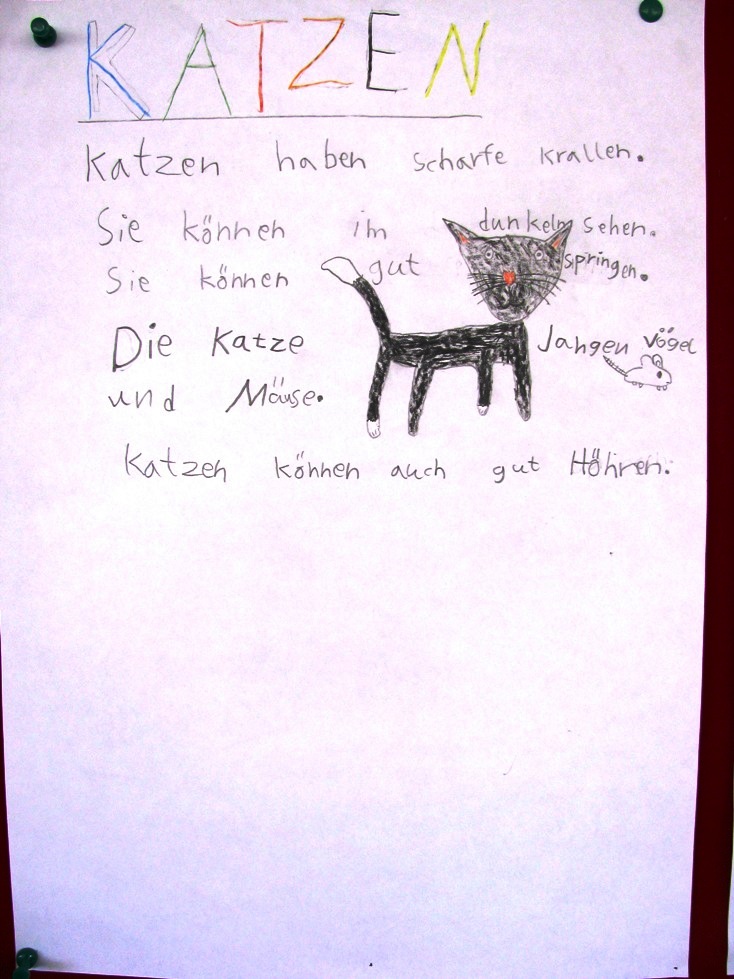 KATZEN
Katzen haben scharfe krallen.
Sie können im dunkeln sehen.
Sie können gut springen.
Die Katze Jangen vögel
und Mäuse.
Katzen können auch gut Höhren.